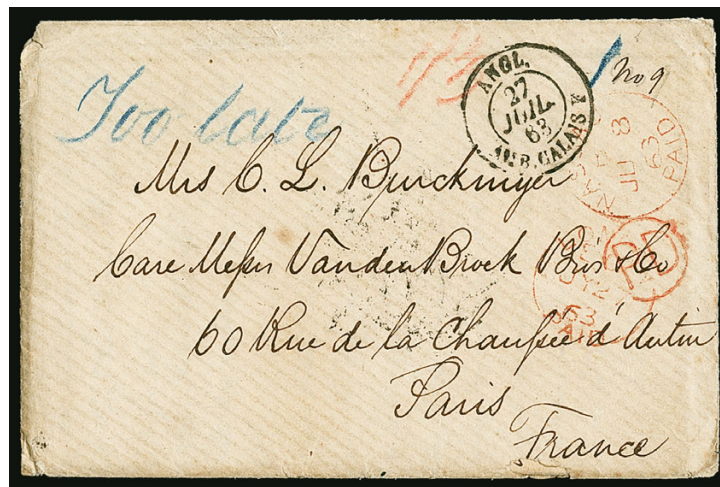 Too late
1/3
No 9
ANGL.
27
JUIL
63
AMB. CALAIS
PAID
63
PD
63
PAID
Mrs C. L. Burckmyer
Care Messrs VandenBroek Bros & Co
60 Rue de la Chaussée d'Antin
Paris
France